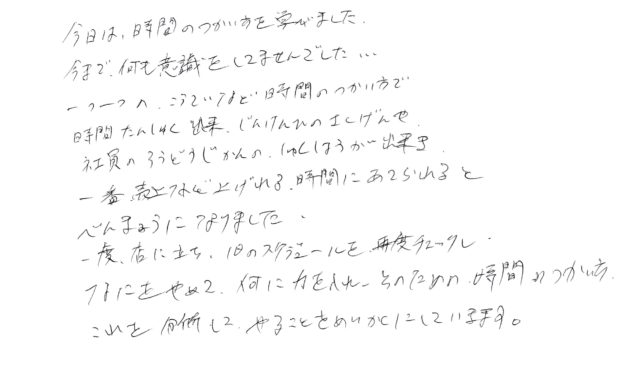 今日は、時間のつかい方を学びました.
今まで、何も意識をしてませんでした…
一つ一つへ、こういうなど時間のつかい方で
時間たんしゅく出来、じんけんひのさくげんや
社員のろうどうじかんの、しゅくしょうが出来ます
一番、売上などで上げれる、時間にあてられると
べんきょうになりました.
一度、店に立ち、1日のスケジュールを再度チェックし.
なにをやめて、何に力を入れ、そのための時間のつかい方.
これを分析して、やることをめいかくにしています。